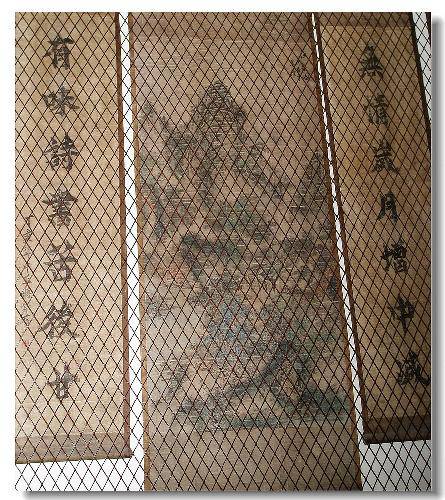 無情歲月增中減
有味詩書苦後甘